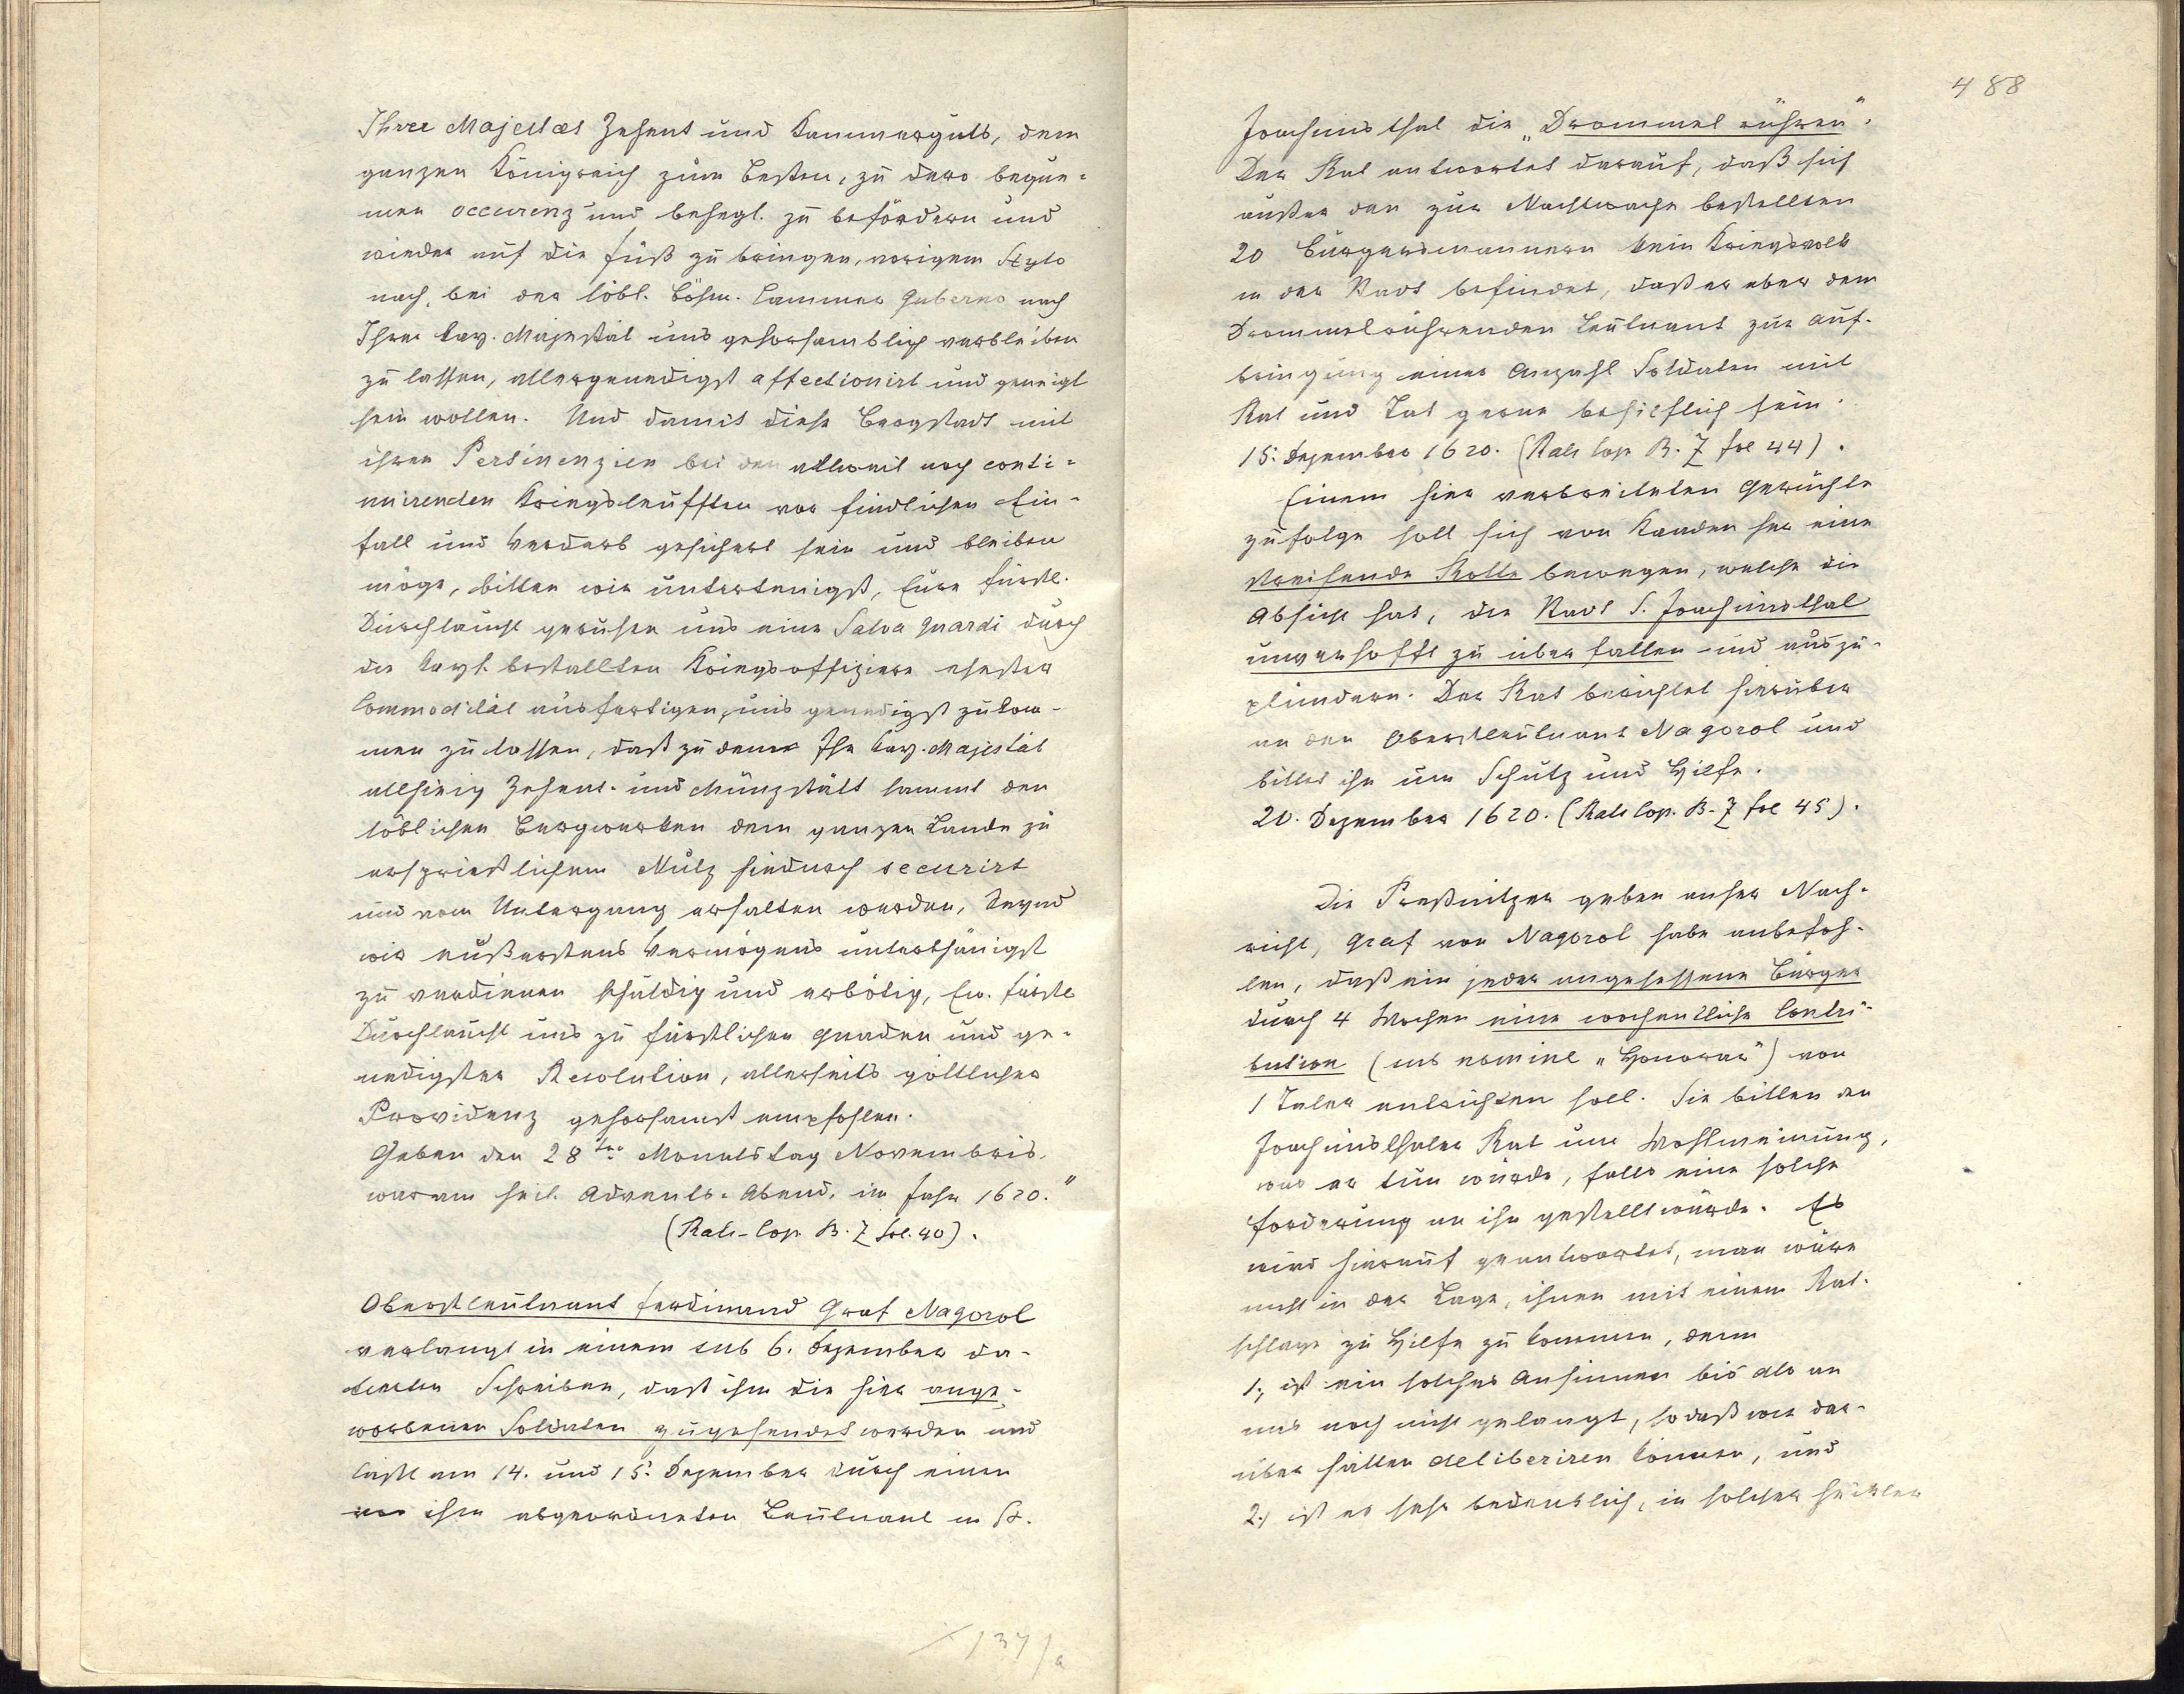 Ihrer Majestaet Zehent und Kammerguts, dem
ganzen Königreich zum Besten, zu dero beque-
men occurenz und behegl. zu befördern und
wieder auf die Füß zu bringen, vorigem Stylo
nach, bei der löbl. Böhm. Cammer Guberno nach
Ihrer kay. Majestät uns gehorsamblich verbleiben
zu lassen, allergenedigst affectionirt und geneigt
sein wollen. Und damit diese Bergstadt mit
ihren Pertinenzien bei den allweil noch conti-
nuirenden Kriegsleufften vor findlichen Ein-
fall und Verderb gesichert sein und bleiben
möge, bitten wir untertenigst, Eure fürstl.
Durchlaucht geruhen uns eine Salva Guardi durch
die kayl. bestallten Kriegsoffiziere ehester
Commodität ausfertigen, uns genedigst zukom-
men zu lassen, daß zu deme Ihr kay. Majestät
allhierig Zehent- und Münzstätt sammt den
löblichen Bergwerken dem ganzen Lande zu
ersprießlichem Nutz hiedurch securirt
und vom Untergang erhalten werden, seynd
wir eußerstens Vermögens unterthänigst
zu verdienen schuldig und erbötig, Ew. fürstl
Durchlaucht uns zu fürstlichen Gnaden und ge-
nedigster Resolution, allerseits göttlicher
Providenz gehorsamst empfohlen.
Geben den 28ten Monatstag Novembris,
war am heil. Advents-Abend, im Jahr 1620."
(Rats-Cop. B. Z fol. 40).
Oberstleutnant Ferdinand Graf Nagorol
verlangt in einem sub 6. Dezember da-
tierten Schreiben, daß ihm die hier ange-
worbenen Soldaten zugesendet werden und
läßt am 14. und 15. Dezember durch einen
von ihm abgeordneten Leutnant in St.
137/a
488
Joachimsthal die „Drommel rühren".
Der Rat antwortet darauf, daß sich
außer den zur Nachtwache bestellten
20 Bürgersmannern kein Kriegsvolk
in der Stadt befindet, daß er aber dem
Drommelrührenden Leutnant zur Auf-
bringung einer Anzahl Soldaten mit
Rat und Tat gerne behilflich sein.
15. Dezember 1620. (Rats Cop. B. Z fol 44).
Einem hier verbreiteten Gerüchte
zufolge soll sich von Kaaden her eine
streifende Rotte bewegen, welche die
Absicht hat, die Stadt S. Joachimsthal
unverhofft zu überfallen und auszu-
plündern. Der Rat berichtet hierüber
an den Oberstleutnant Nagorol und
bittet ihn um Schutz und Hilfe.
20. Dezember 1620. (Rats Cop. B. Z fol 45).
Die Preßnitzer geben anher Nach-
richt, Graf von Nagorol habe anbefoh-
len, daß ein jeder angesessene Bürger
durch 4 Wochen eine wochentliche Contri-
bution (sub nomine „Honorar") von
1 Taler entrichten soll. Sie bitten den
Joachimsthaler Rat um Wohlmeinung,
was er tun würde, falls eine solche
Forderung an ihn gestellt würde. Es
wird hierauf geantwortet, man wäre
nicht in der Lage, ihnen mit einem Rat-
schlage zu Hilfe zu kommen, denn
1., ist ein solches Ansinnen bis als an
uns noch nicht gelangt, so daß wir dar-
über hätten deliberiren können, und
2., ist es sehr bedenklich, in solcher